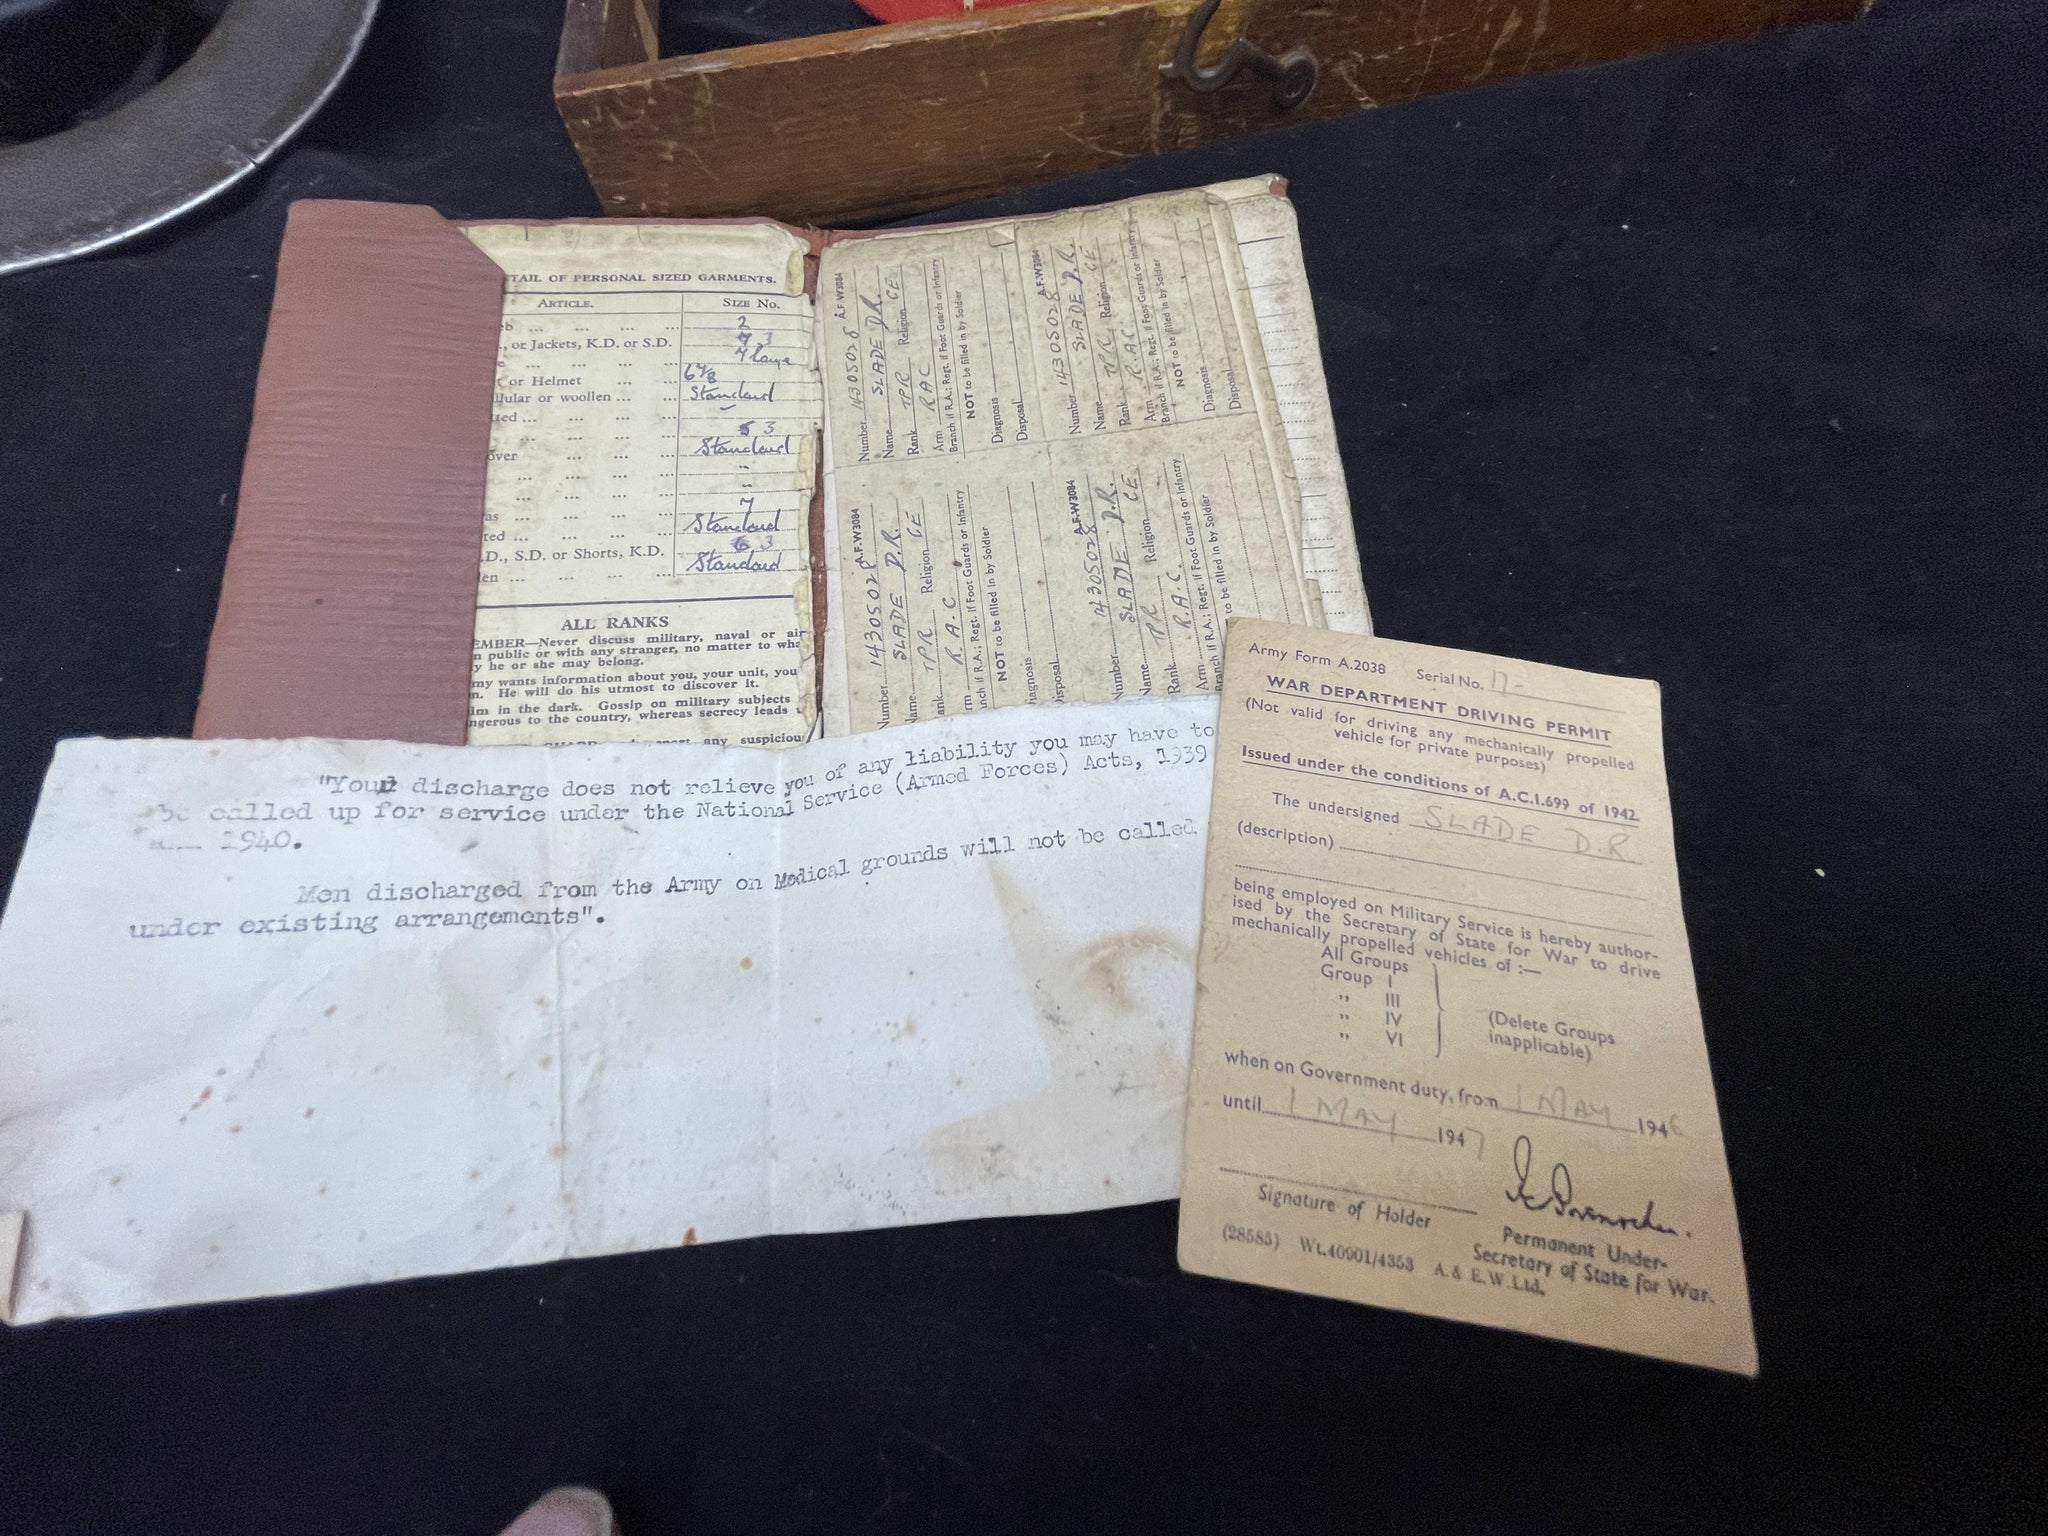 TAIL OF PERSONAL SIZED GARMENTS.
ARTICLE. SIZE No.
eb ... ... ... ... 2
., or Jackets, K.D. or S.D. 3
7 large
or Helmet ... ... 6⅞
llular or woollen ... ... Standard
tted ... ... ... ... –
... ... ... 3
over ... ... ... Standard
... ... ... ... "
... ... ... ... "
as ... ... ... ... 7
ted ... ... ... ... Standard
.D., S.D. or Shorts, K.D. 3
en ... ... ... ... Standard
ALL RANKS
EMBER—Never discuss military, naval or air
n public or with any stranger, no matter to wha
y he or she may belong.
my wants information about you, your unit, you
n. He will do his utmost to discover it.
lm in the dark. Gossip on military subjects
ngerous to the country, whereas secrecy leads
any suspiciou
A.F.W3084
Number 14305028
Name SLADE D.R.
Rank TPR Religion CE
Arm RAC
Branch if R.A.; Regt. if Foot Guards or Infantry
NOT to be filled in by Soldier
Diagnosis
Disposal
A.F.W3084
Number 14305028
Name SLADE D.R.
Rank TPR Religion CE
Arm R.A.C
Branch if R.A.; Regt. if Foot Guards or Infantry
NOT to be filled in by Soldier
Diagnosis
Disposal
A.F.W3084
Number 14305028
Name SLADE D.R.
ank TPR Religion CE
rm R.A.C
nch if R.A.; Regt. if Foot Guards or Infantry
NOT to be filled in by Soldier
iagnosis
isposal
A.F.W3084
Number 14305028
Name SLADE D.R.
Rank TPR Religion CE
Arm R.A.C.
Branch if R.A.; Regt. if Foot Guards or Infantry
to be filled in by Soldier
"Your discharge does not relieve you of any liability you may have to
be called up for service under the National Service (Armed Forces) Acts, 1939
1940.
Men discharged from the Army on Medical grounds will not be called
under existing arrangements".
Army Form A.2038 Serial No. 17-
WAR DEPARTMENT DRIVING PERMIT
(Not valid for driving any mechanically propelled
vehicle for private purposes)
Issued under the conditions of A.C.I.699 of 1942
The undersigned SLADE D.R
(description)
being employed on Military Service is hereby author-
ised by the Secretary of State for War to drive
mechanically propelled vehicles of :—
All Groups
Group I
" III
" IV
" VI
(Delete Groups
inapplicable)
when on Government duty, from 1 MAY 1946
until 1 MAY 1947
Signature of Holder
Permanent Under-
Secretary of State for War.
(28585) Wt.40901/4353 A. & E.W.Ltd.